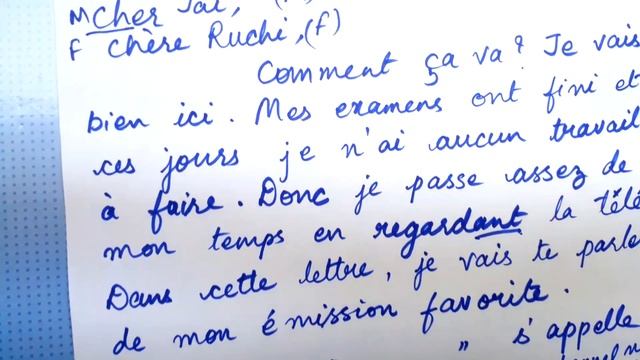 M Cher Jai,
F Chère Ruchi, (f)
Comment ça va? Je vais
bien ici. Mes examens ont fini et
ces jours je n'ai aucun travail
à faire. Donc je passe assez de
mon temps en regardant la télé
Dans cette lettre, je vais te parle
de mon émission favorite.
" s'appelle